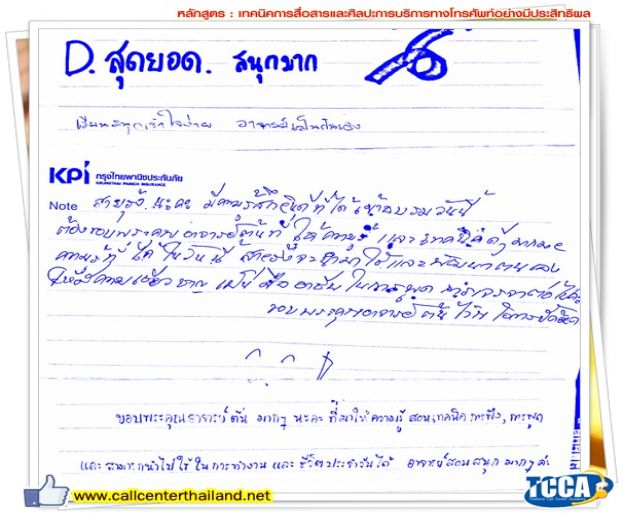 หลักสูตร : เทคนิคการสื่อสารและศิลปะการบริการทางโทรศัพท์อย่างมีประสิทธิผล
D. สุดยอด. สนุกมาก
เรียนสนุกเข้าใจง่าย อาจารย์เป็นกันเอง
KPi กรุงไทยพานิชประกันภัย
KRUNGTHAI PANICH INSURANCE
Note สายรุ้ง นะคะ มีความรู้สึกยินดีที่ได้เข้าอบรมวันนี้
ต้องขอบพระคุณอาจารย์ต้นที่ให้ความรู้ และเทคนิคดีๆ
ความรู้ที่ได้ในวันนี้ สายรุ้งจะนำมาใช้และพัฒนาตนเอง
ให้มีความเชี่ยวชาญ มืออาชีพ ในการพูด
ขอบพระคุณอาจารย์ต้น ไว้ ณ โอกาสนี้ด้วย
ขอบพระคุณอาจารย์ต้น มากๆ นะคะ ที่มาให้ความรู้ สอนเทคนิค การฟัง, การพูด
และ สามารถนำไปใช้ ในการทำงาน และ ชีวิตประจำวันได้ อาจารย์สอนสนุก มากๆ ค่ะ
www.callcenterthailand.net
TCCA